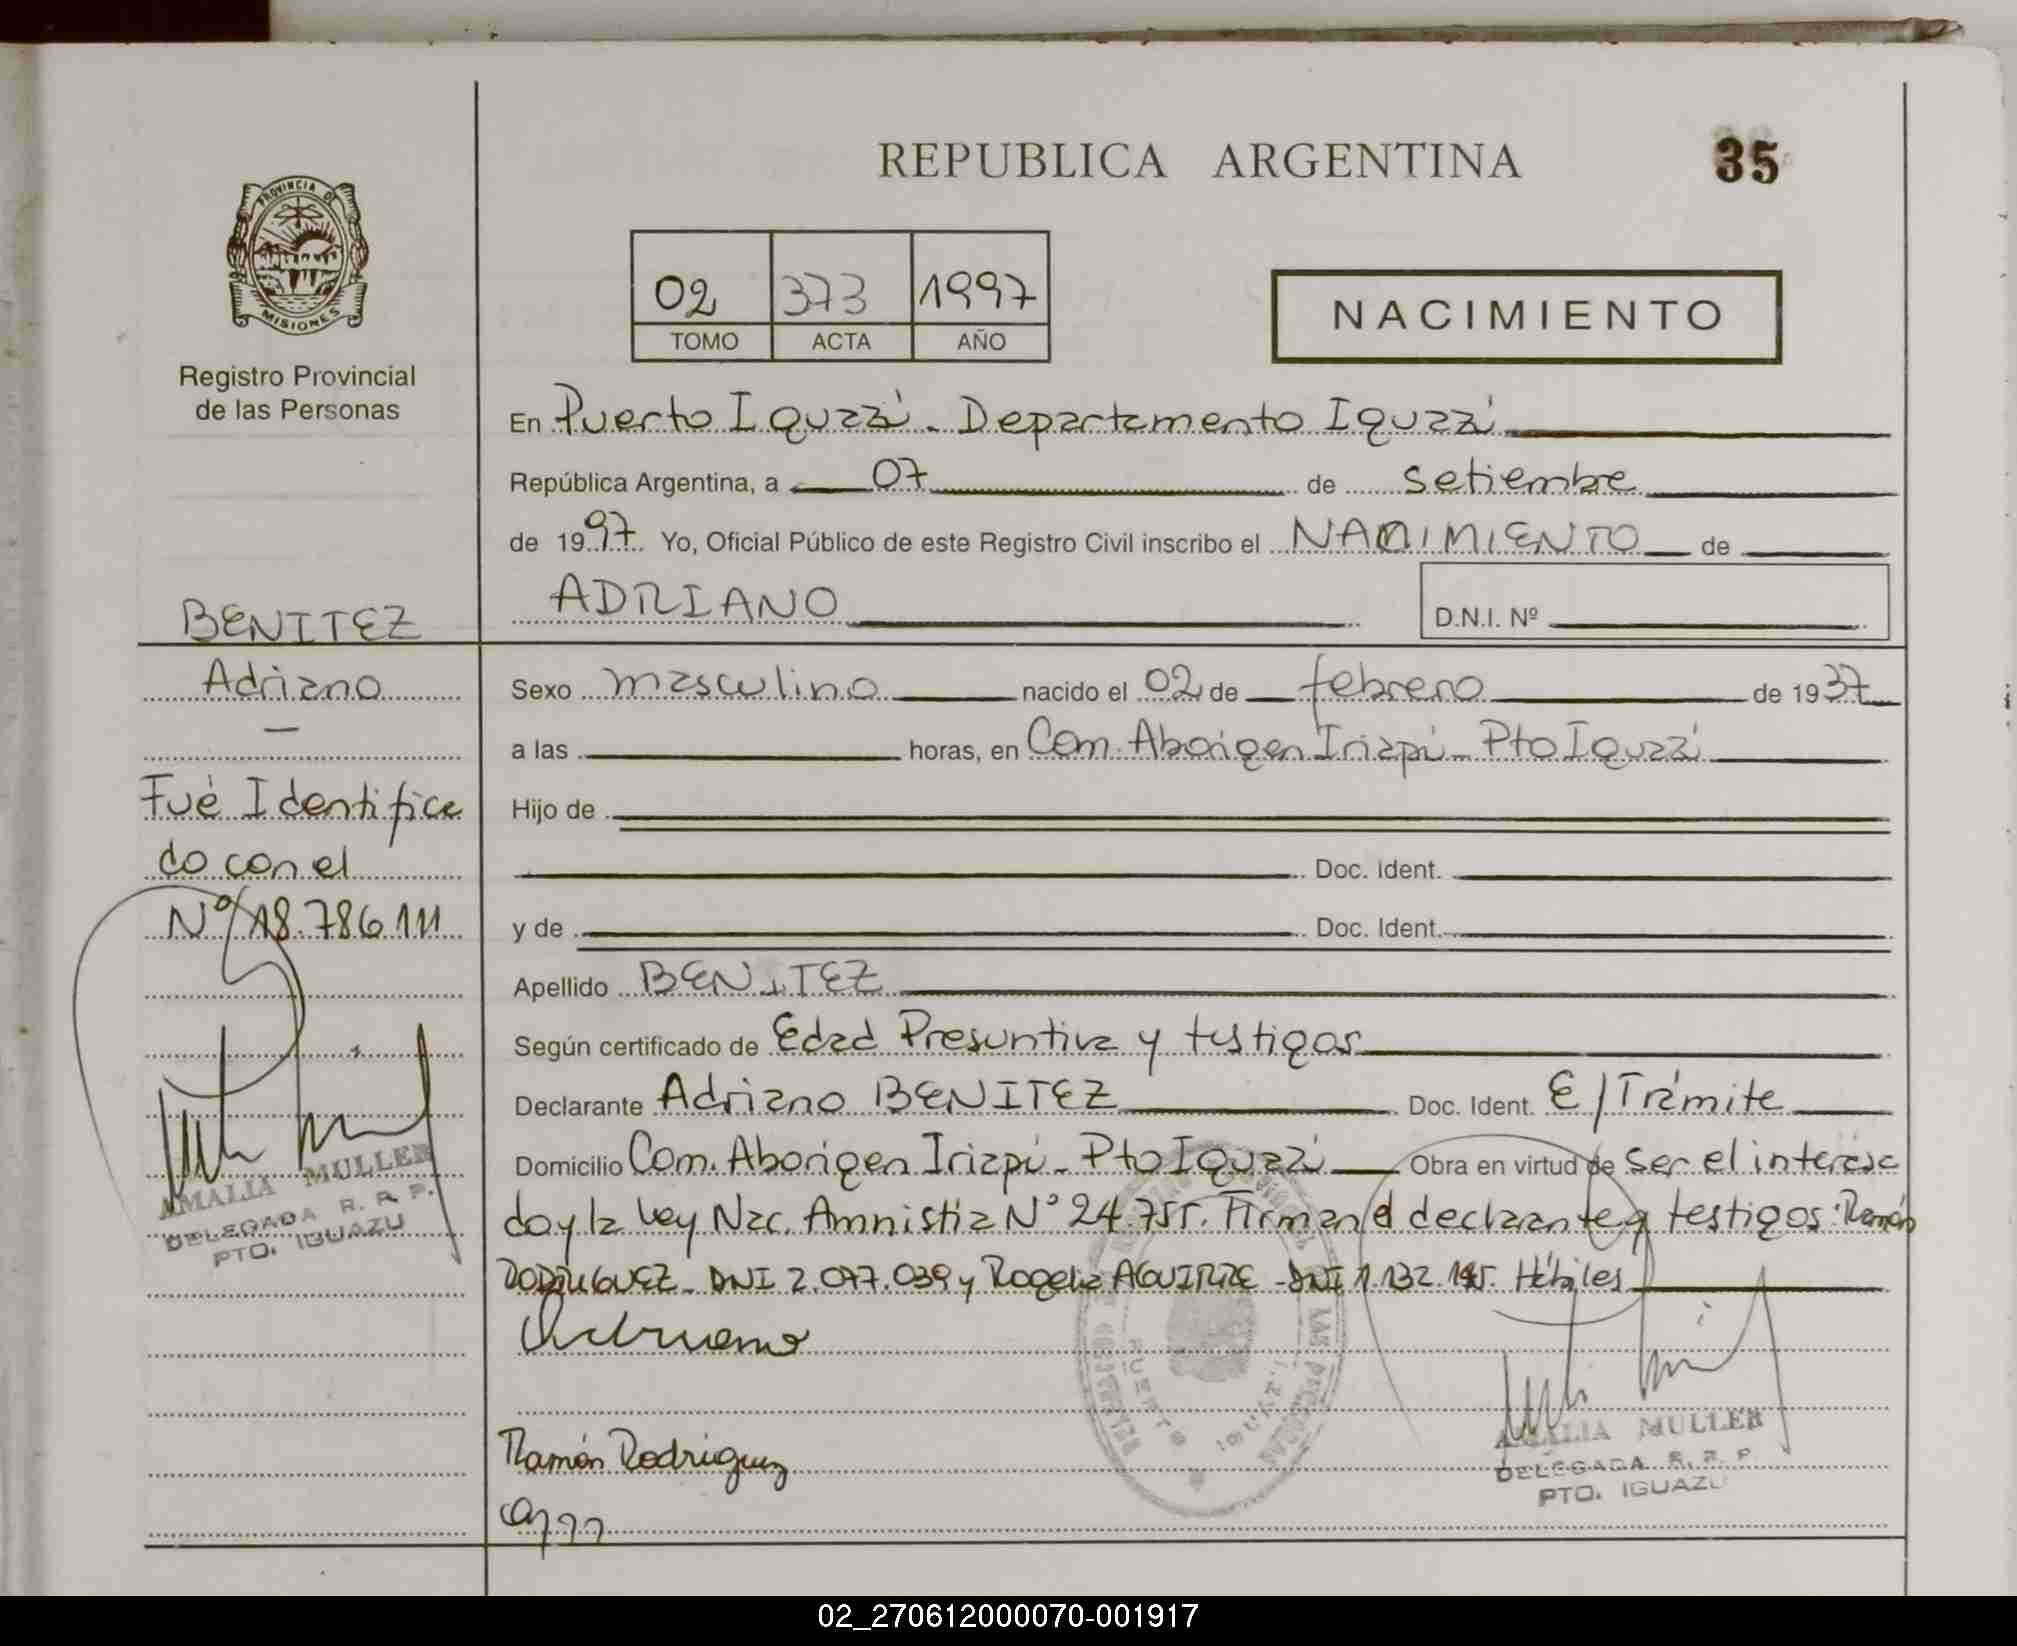 REPUBLICA ARGENTINA
35
PROVINCIA DE
MISIONES
Registro Provincial
de las Personas
02 373 1997
TOMO ACTA AÑO
NACIMIENTO
En Puerto Iguazú. Departamento Iguazú
República Argentina, a 07 de setiembre
de 1997 Yo, Oficial Público de este Registro Civil inscribo el NACIMIENTO de
ADRIANO D.N.I. Nº
BENITEZ
Adriano
Fué Identifica
do con el
Nº 18.786.111
AMALIA MULLER
DELEGADA R. R. P.
PTO. IGUAZU
Sexo masculino nacido el 02 de febrero de 1937
a las horas, en Com. Aborigen Iriapú - Pto Iguazú
Hijo de
Doc. Ident.
y de Doc. Ident.
Apellido BENITEZ
Según certificado de Edad Presuntiva y testigos
Declarante Adriano BENITEZ Doc. Ident. E/Trámite
Domicilio Com. Aborigen Iriapú - Pto Iguazú Obra en virtud de ser el interesa
do y la Ley Nac. Amnistia N° 24.755. Firman el declarante y testigos: Ramón
RODRIGUEZ - DNI 2.077.039 y Rogelia AGUIRRE - DNI 1.132.195. Hábiles
Adriano
Ramón Rodriguez
AMALIA MULLER
DELEGADA R. R. P.
PTO. IGUAZU
02_270612000070-001917